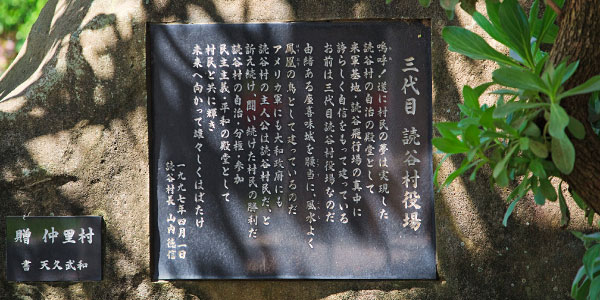 三代目 読谷村役場
嗚呼!遂に村民の夢は実現した
読谷村の自治の殿堂として
米軍基地、読谷飛行場の真中に
誇らしく自信をもって建っている
お前は三代目読谷村役場なのだ
由緒ある座喜味城を腰当に、風水よく
鳳凰の鳥として建っているのだ
アメリカ軍にも大和政府にも
読谷村の主人公は読谷村民だ、と
訴え続け、闘い続けた村民の勝利だ
読谷村の自治・分権・参加
民主主義・平和の殿堂として
村民と共に輝き
未来へ向かって雄々しくはばたけ
一九九七年四月一日
読谷村長 山内徳信
贈 仲里村
書 天久武和